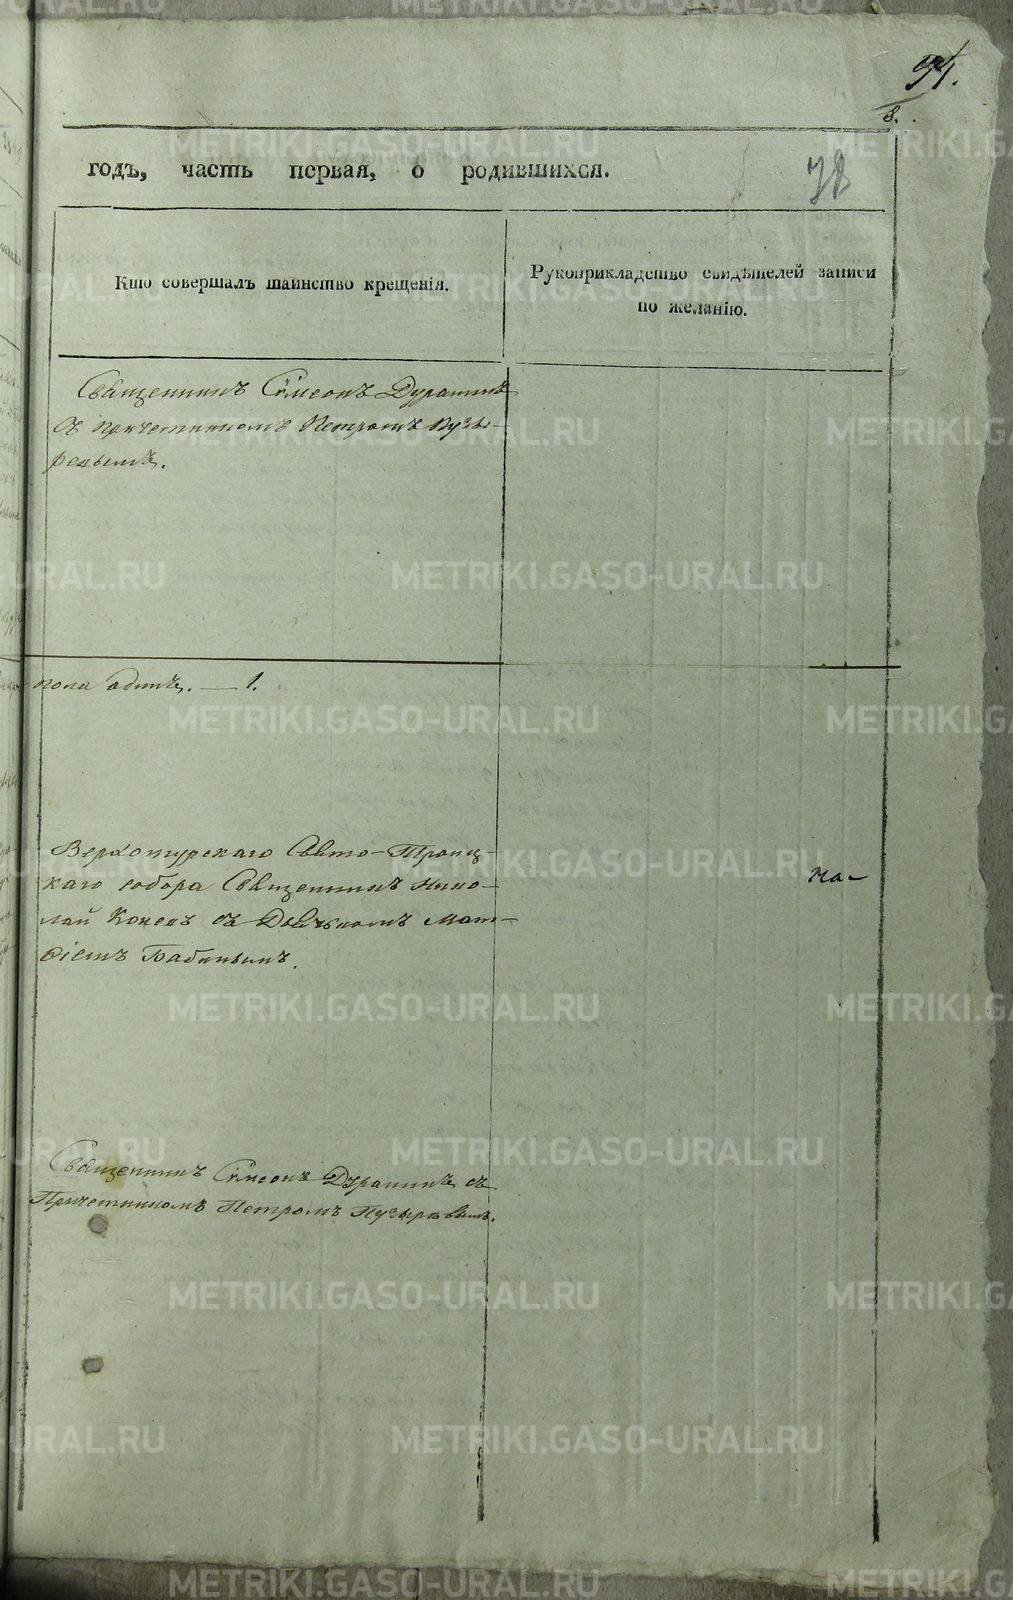 8.
годъ, часть первая, о родившихся.
78
Кто совершалъ таинство крещенія.
Рукоприкладство свидѣтелей записи
по желанію.
Священникъ Сѵмеонъ
съ Причетникомъ Петромъ Пузы-
ревымъ.
пола одинъ. — 1.
Верхотурскаго Свято-Троиц-
каго собора Священникъ Нико-
лай Коневъ съ Дьячкомъ Мат-
ѳіемъ Бабинымъ.
На-
Священникъ Сѵмеонъ съ
Причетникомъ Петромъ Пузыревымъ.
METRIKI.GASO-URAL.RU